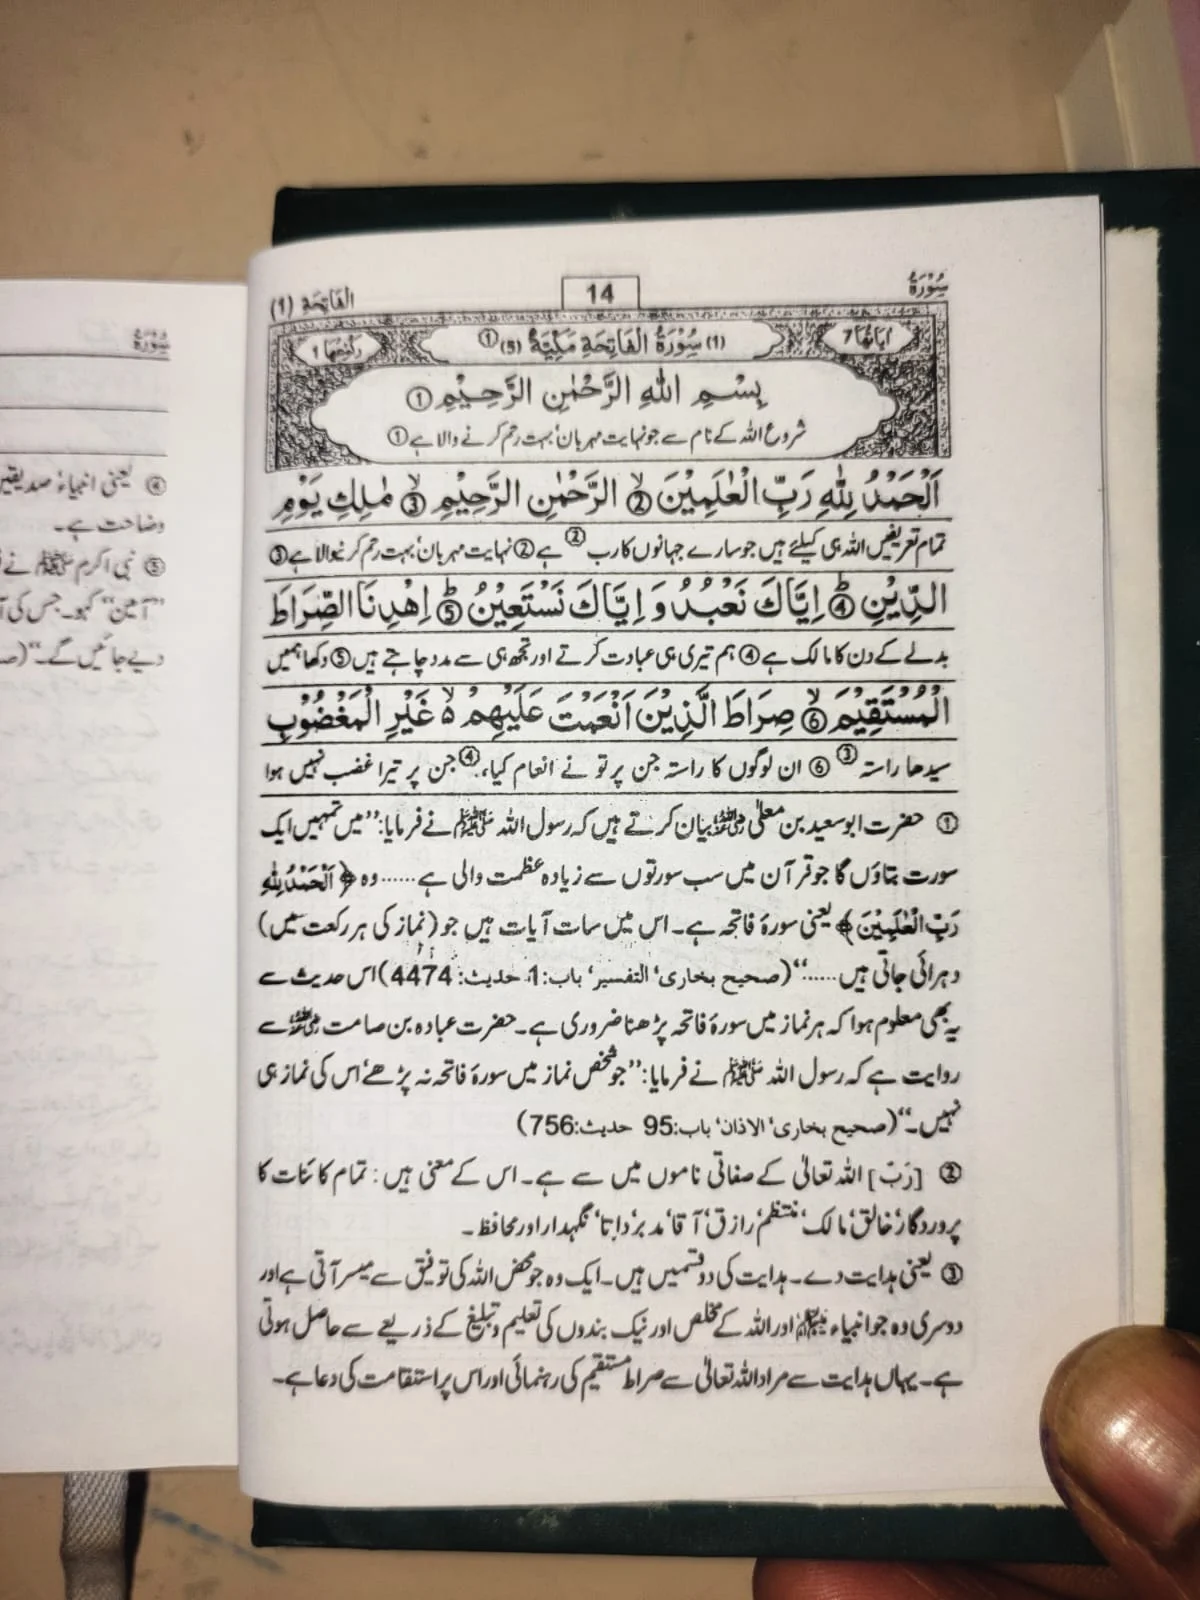 سُوْرَةُ
14
الفَاتِحَةِ (1)
اٰیَاتُهَا 7
(1) سُوْرَةُ الْفَاتِحَةِ مَكِّيَّةٌ (5) ①
رُكُوْعُهَا 1
بِسْمِ اللهِ الرَّحْمٰنِ الرَّحِيْمِ ①
شروع اللہ کے نام سے جو نہایت مہربان، بہت رحم کرنے والا ہے ①
اَلْحَمْدُ لِلّٰهِ رَبِّ الْعٰلَمِيْنَ ② الرَّحْمٰنِ الرَّحِيْمِ ③ مٰلِكِ يَوْمِ
تمام تعریفیں اللہ ہی کیلئے ہیں جو سارے جہانوں کا رب ② ہے ② نہایت مہربان، بہت رحم کرنیوالا ہے ③
الدِّيْنِ ④ اِيَّاكَ نَعْبُدُ وَ اِيَّاكَ نَسْتَعِيْنُ ⑤ اِهْدِنَا الصِّرَاطَ
بدلے کے دن کا مالک ہے ④ ہم تیری ہی عبادت کرتے اور تجھ ہی سے مدد چاہتے ہیں ⑤ دکھا ہمیں
الْمُسْتَقِيْمَ ⑥ صِرَاطَ الَّذِيْنَ اَنْعَمْتَ عَلَيْهِمْ ۵ غَيْرِ الْمَغْضُوْبِ
سیدھا راستہ ③ ⑥ ان لوگوں کا راستہ جن پر تو نے انعام کیا، ④ جن پر تیرا غضب نہیں ہوا
① حضرت ابو سعید بن معلّٰی رضی اللہ عنہ بیان کرتے ہیں کہ رسول اللہ ﷺ نے فرمایا: ”میں تمہیں ایک
سورت بتاؤں گا جو قرآن میں سب سورتوں سے زیادہ عظمت والی ہے ...... وہ ﴿اَلْحَمْدُ لِلّٰهِ
رَبِّ الْعٰلَمِيْنَ﴾ یعنی سورۂ فاتحہ ہے۔ اس میں سات آیات ہیں جو (نماز کی ہر رکعت میں)
دہرائی جاتی ہیں ......“ (صحیح بخاری، التفسیر، باب:1، حدیث: 4474) اس حدیث سے
یہ بھی معلوم ہوا کہ ہر نماز میں سورۂ فاتحہ پڑھنا ضروری ہے۔ حضرت عبادہ بن صامت رضی اللہ عنہ سے
روایت ہے کہ رسول اللہ ﷺ نے فرمایا: ”جو شخص نماز میں سورۂ فاتحہ نہ پڑھے، اس کی نماز ہی
نہیں۔“ (صحیح بخاری، الاذان، باب:95 حدیث:756)
② [رَبّ] اللہ تعالیٰ کے صفاتی ناموں میں سے ہے۔ اس کے معنی ہیں: تمام کائنات کا
پروردگار، خالق، مالک، منتظم، رازق، آقا، مدبر، داتا، نگہدار اور محافظ۔
③ یعنی ہدایت دے۔ ہدایت کی دو قسمیں ہیں۔ ایک وہ جو محض اللہ کی توفیق سے میسر آتی ہے اور
دوسری وہ جو انبیاء علیہم السلام اور اللہ کے مخلص اور نیک بندوں کی تعلیم و تبلیغ کے ذریعے سے حاصل ہوتی
ہے۔ یہاں ہدایت سے مراد اللہ تعالیٰ سے صراط مستقیم کی رہنمائی اور اس پر استقامت کی دعا ہے۔
سُوْرَةُ
④ یعنی انبیاء، صدیقین
وضاحت ہے۔
⑤ نبی اکرم ﷺ نے
”آمین“ کہو۔ جس کی
دیے جائیں گے۔“